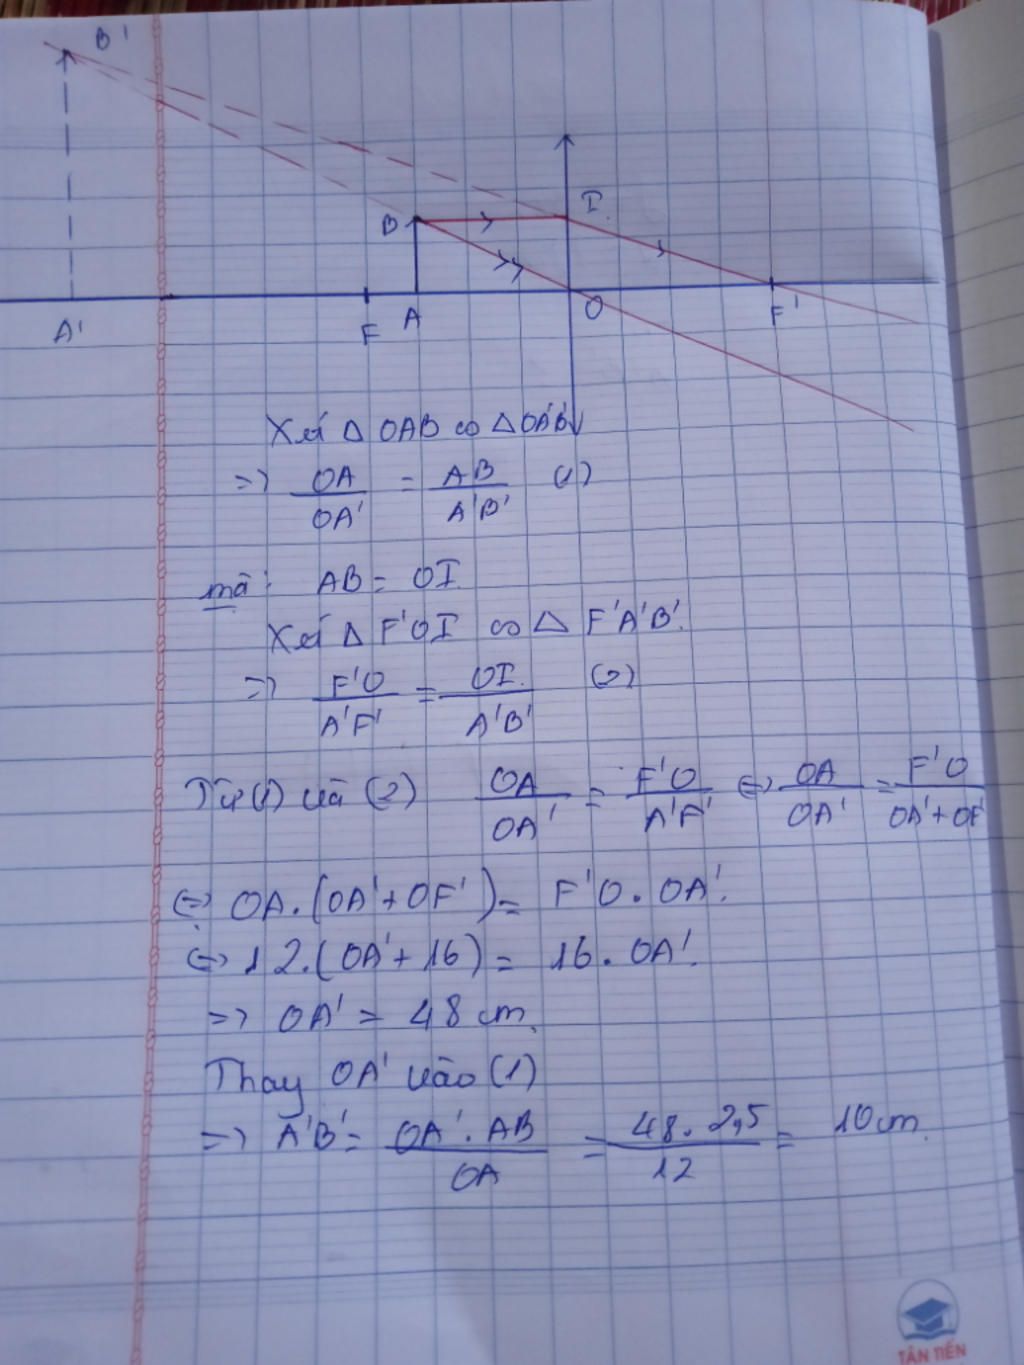 B'
B
I
A'
F
A
O
F'
Xét Δ OAB ∽ Δ OA'B'
=> OA/OA' = AB/A'B' (1)
mà: AB = OI
Xét Δ F'OI ∽ Δ F'A'B'.
=> F'O/A'F' = OI/A'B' (2)
Từ (1) và (2) OA/OA' = F'O/A'F' <=> OA/OA' = F'O/OA'+OF'
<=> OA.(OA'+OF') = F'O.OA'.
<=> 12.(OA'+16) = 16.OA'.
=> OA' = 48 cm.
Thay OA' vào (1)
=> A'B' = OA'.AB/OA = 48.2,5/12 = 10 cm.
TÂN TIẾN